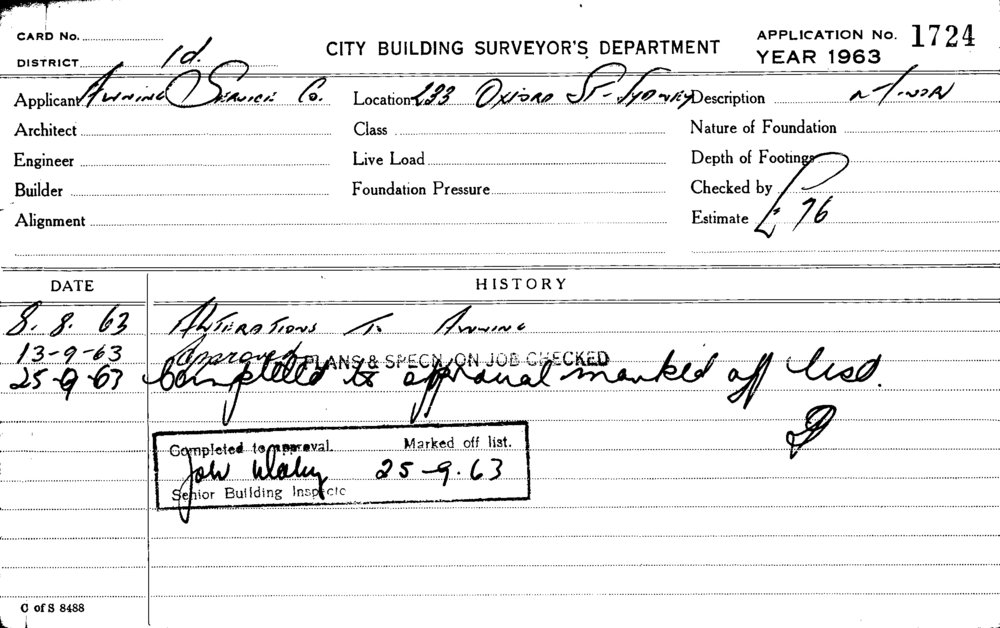 CARD No.
CITY BUILDING SURVEYOR'S DEPARTMENT
APPLICATION No. 1724
YEAR 1963
DISTRICT 1d.
Applicant Awning Service Co. Location 233 Oxford St - Sydney Description Minor
Architect Class Nature of Foundation
Engineer Live Load Depth of Footings
Builder Foundation Pressure Checked by
Alignment Estimate £ 76
DATE HISTORY
8. 8. 63 Alterations To Awning
13-9-63 Approved
PLANS & SPECN. ON JOB CHECKED
25-9-63 Completed to approval marked off list.
Completed to approval. Marked off list.
John 25-9.63
Senior Building Inspector
C of S 8488